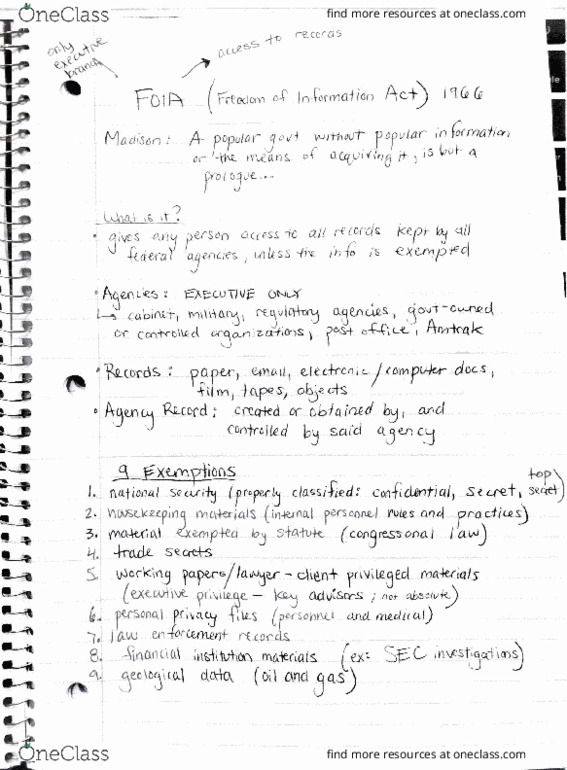 OneClass
find more resources at oneclass.com
only
executive
branch
access to records
FOIA (Freedom of Information Act) 1966
Madison: A popular govt without popular information
or the means of acquiring it, is but a
prologue...
What is it?
• gives any person access to all records kept by all
federal agencies, unless the info is exempted
• Agencies: EXECUTIVE ONLY
↳ cabinet, military, regulatory agencies, govt-owned
or controlled organizations, post office, Amtrak
• Records: paper, email, electronic/computer docs,
film, tapes, objects
• Agency Record: created or obtained by, and
controlled by said agency
9 Exemptions
1. national security (properly classified: confidential, secret, top secret)
2. housekeeping materials (internal personnel rules and practices)
3. material exempted by statute (congressional law)
4. trade secrets
5. working papers/lawyer-client privileged materials
(executive privilege - key advisors; not absolute)
6. personal privacy files (personnel and medical)
7. law enforcement records
8. financial institution materials (ex: SEC investigations)
9. geological data (oil and gas)
OneClass
find more resources at oneclass.com